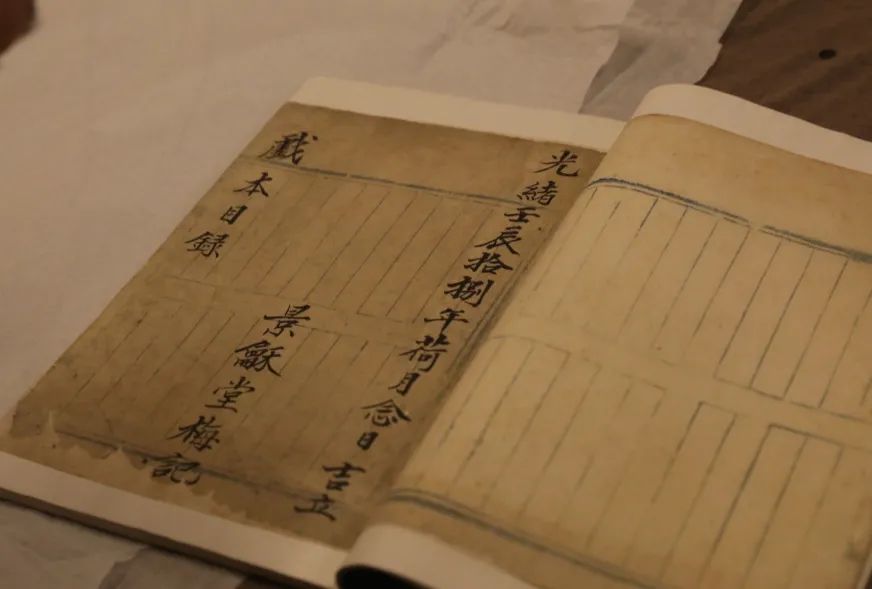 光緒壬辰拾捌年荷月念日 吉立
戲本目錄
景龢堂梅記